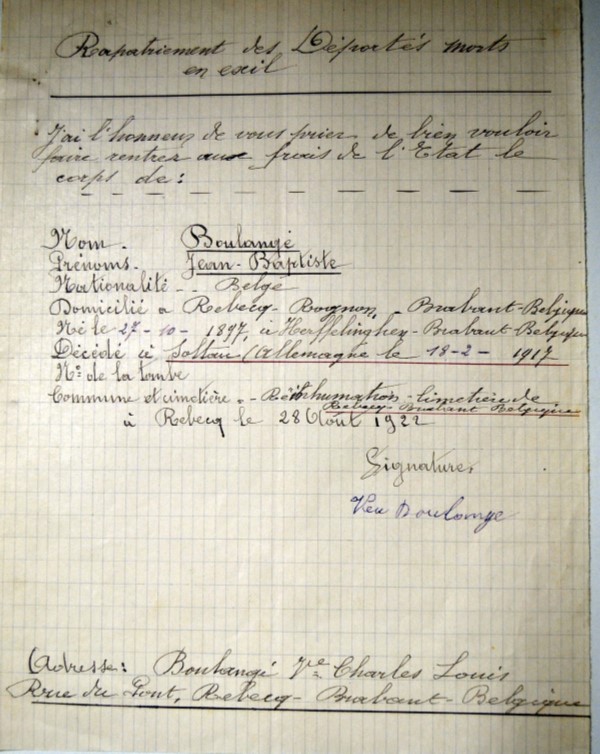 Rapatriement des Déportés morts
en exil
J'ai l'honneur de vous prier de bien vouloir
faire rentrer aux frais de l'Etat le
corps de :
Nom. Boulangé
Prénoms. Jean-Baptiste
Nationalité - Belge
Domicilié à Rebecq-Rognon, - Brabant-Belgique
Né le 27-10-1897, à Herffelinghen-Brabant-Belgique
Décédé à Soltau (Allemagne le 18-2-1917
No de la tombe
Commune et cimetière. - Réinhumation - Cimetière de
Rebecq-Brabant Belgique
à Rebecq le 28 Août 1922
Signature,
Veu Boulange
Adresse : Boulangé Vve Charles Louis
Rue du Pont, Rebecq-Brabant-Belgique